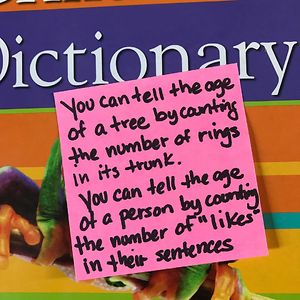 Dictionary
You can tell the age
of a tree by counting
the number of rings
in its trunk.
You can tell the age
of a person by counting
the number of "likes"
in their sentences